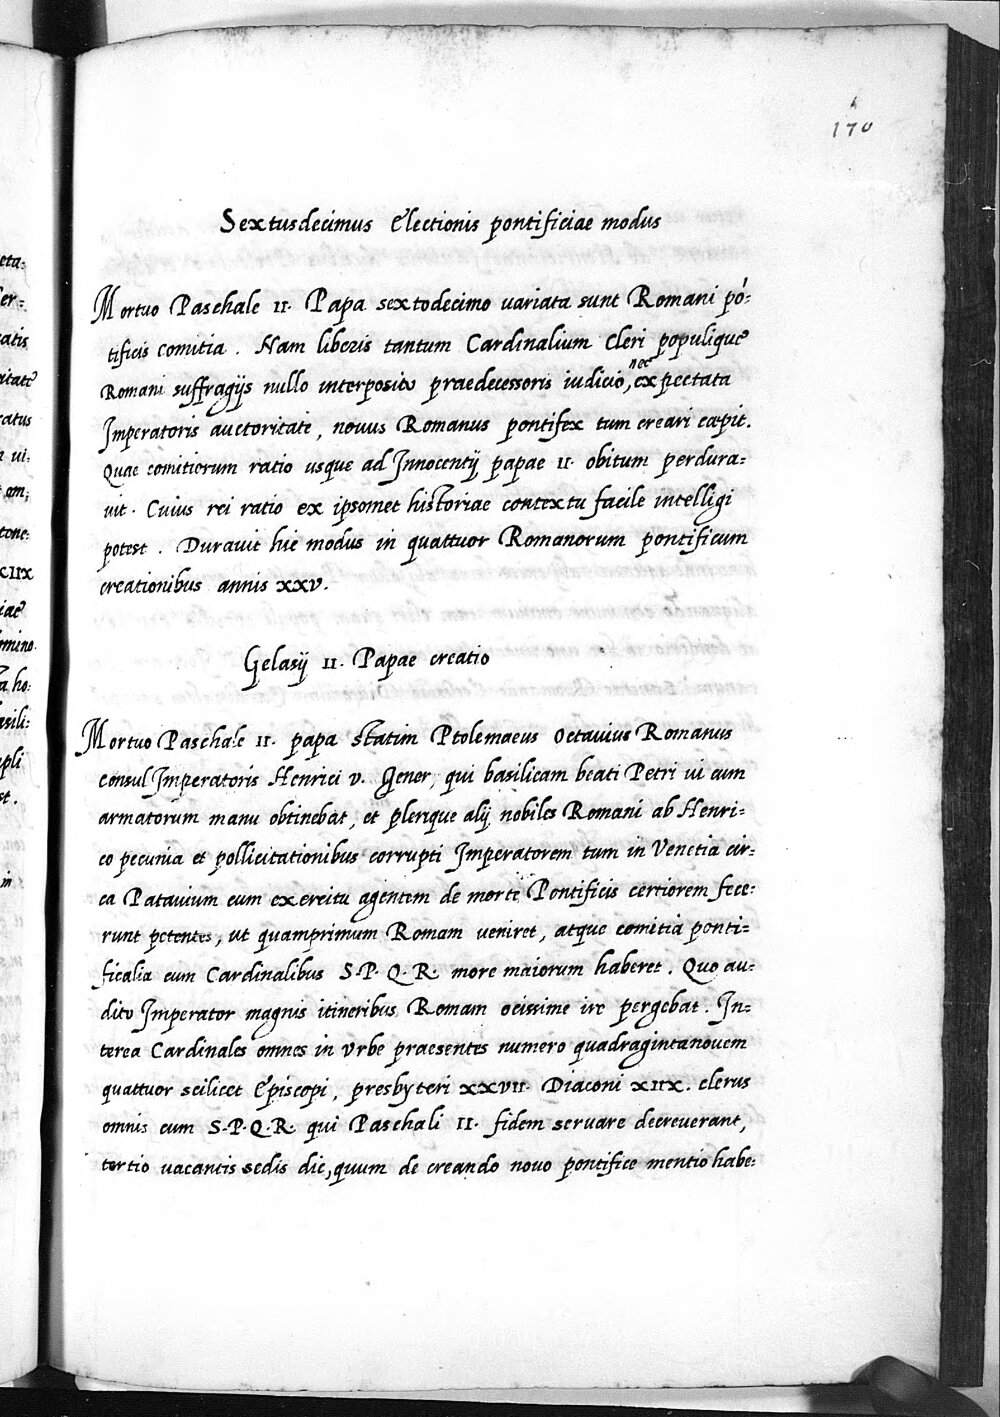 170
Sextusdecimus Electionis pontificiae modus
Mortuo Paschale II. Papa sextodecimo variata sunt Romani pó=
tificis comitia. Nam liberis tantum Cardinalium Cleri populique
Romani suffragijs nullo interposito praedecessoris iudicio, nec expectata
Imperatoris auctoritate, novus Romanus pontifex tum creari cœpit.
Quae comitiorum ratio usque ad Innocentij papae II. obitum perdura=
uit. Cuius rei ratio ex ipsomet historiae contextu facile intelligi
potest. Durauit hic modus in quattuor Romanorum pontificum
creationibus annis XXV.
Gelasij II. Papae creatio
Mortuo Paschale II. papa statim Ptolemaeus Octauius Romanus
consul Imperatoris Henrici V. Gener, qui basilicam beati Petri ui cum
armatorum manu obtinebat, et plerique alij nobiles Romani ab Henri=
co pecunia et pollicitationibus corrupti Imperatorem tum in Venetia cir=
ca Patauium cum exercitu agentem de morte Pontificis certiorem fece=
runt petentes, ut quamprimum Romam ueniret, atque comitia ponti=
ficalia cum Cardinalibus S.P.Q.R. more maiorum haberet. Quo au=
dito Imperator magnis itineribus Romam ocissime ire pergebat. In=
terea Cardinales omnes in Vrbe praesentes numero quadragintanouem
quattuor scilicet Episcopi, presbyteri XXVII. Diaconi XIIX. clerus
omnis cum S.P.Q.R. qui Paschali II. fidem seruare decreuerant,
tertio uacantis sedis die, quum de creando nouo pontifice mentio habe=